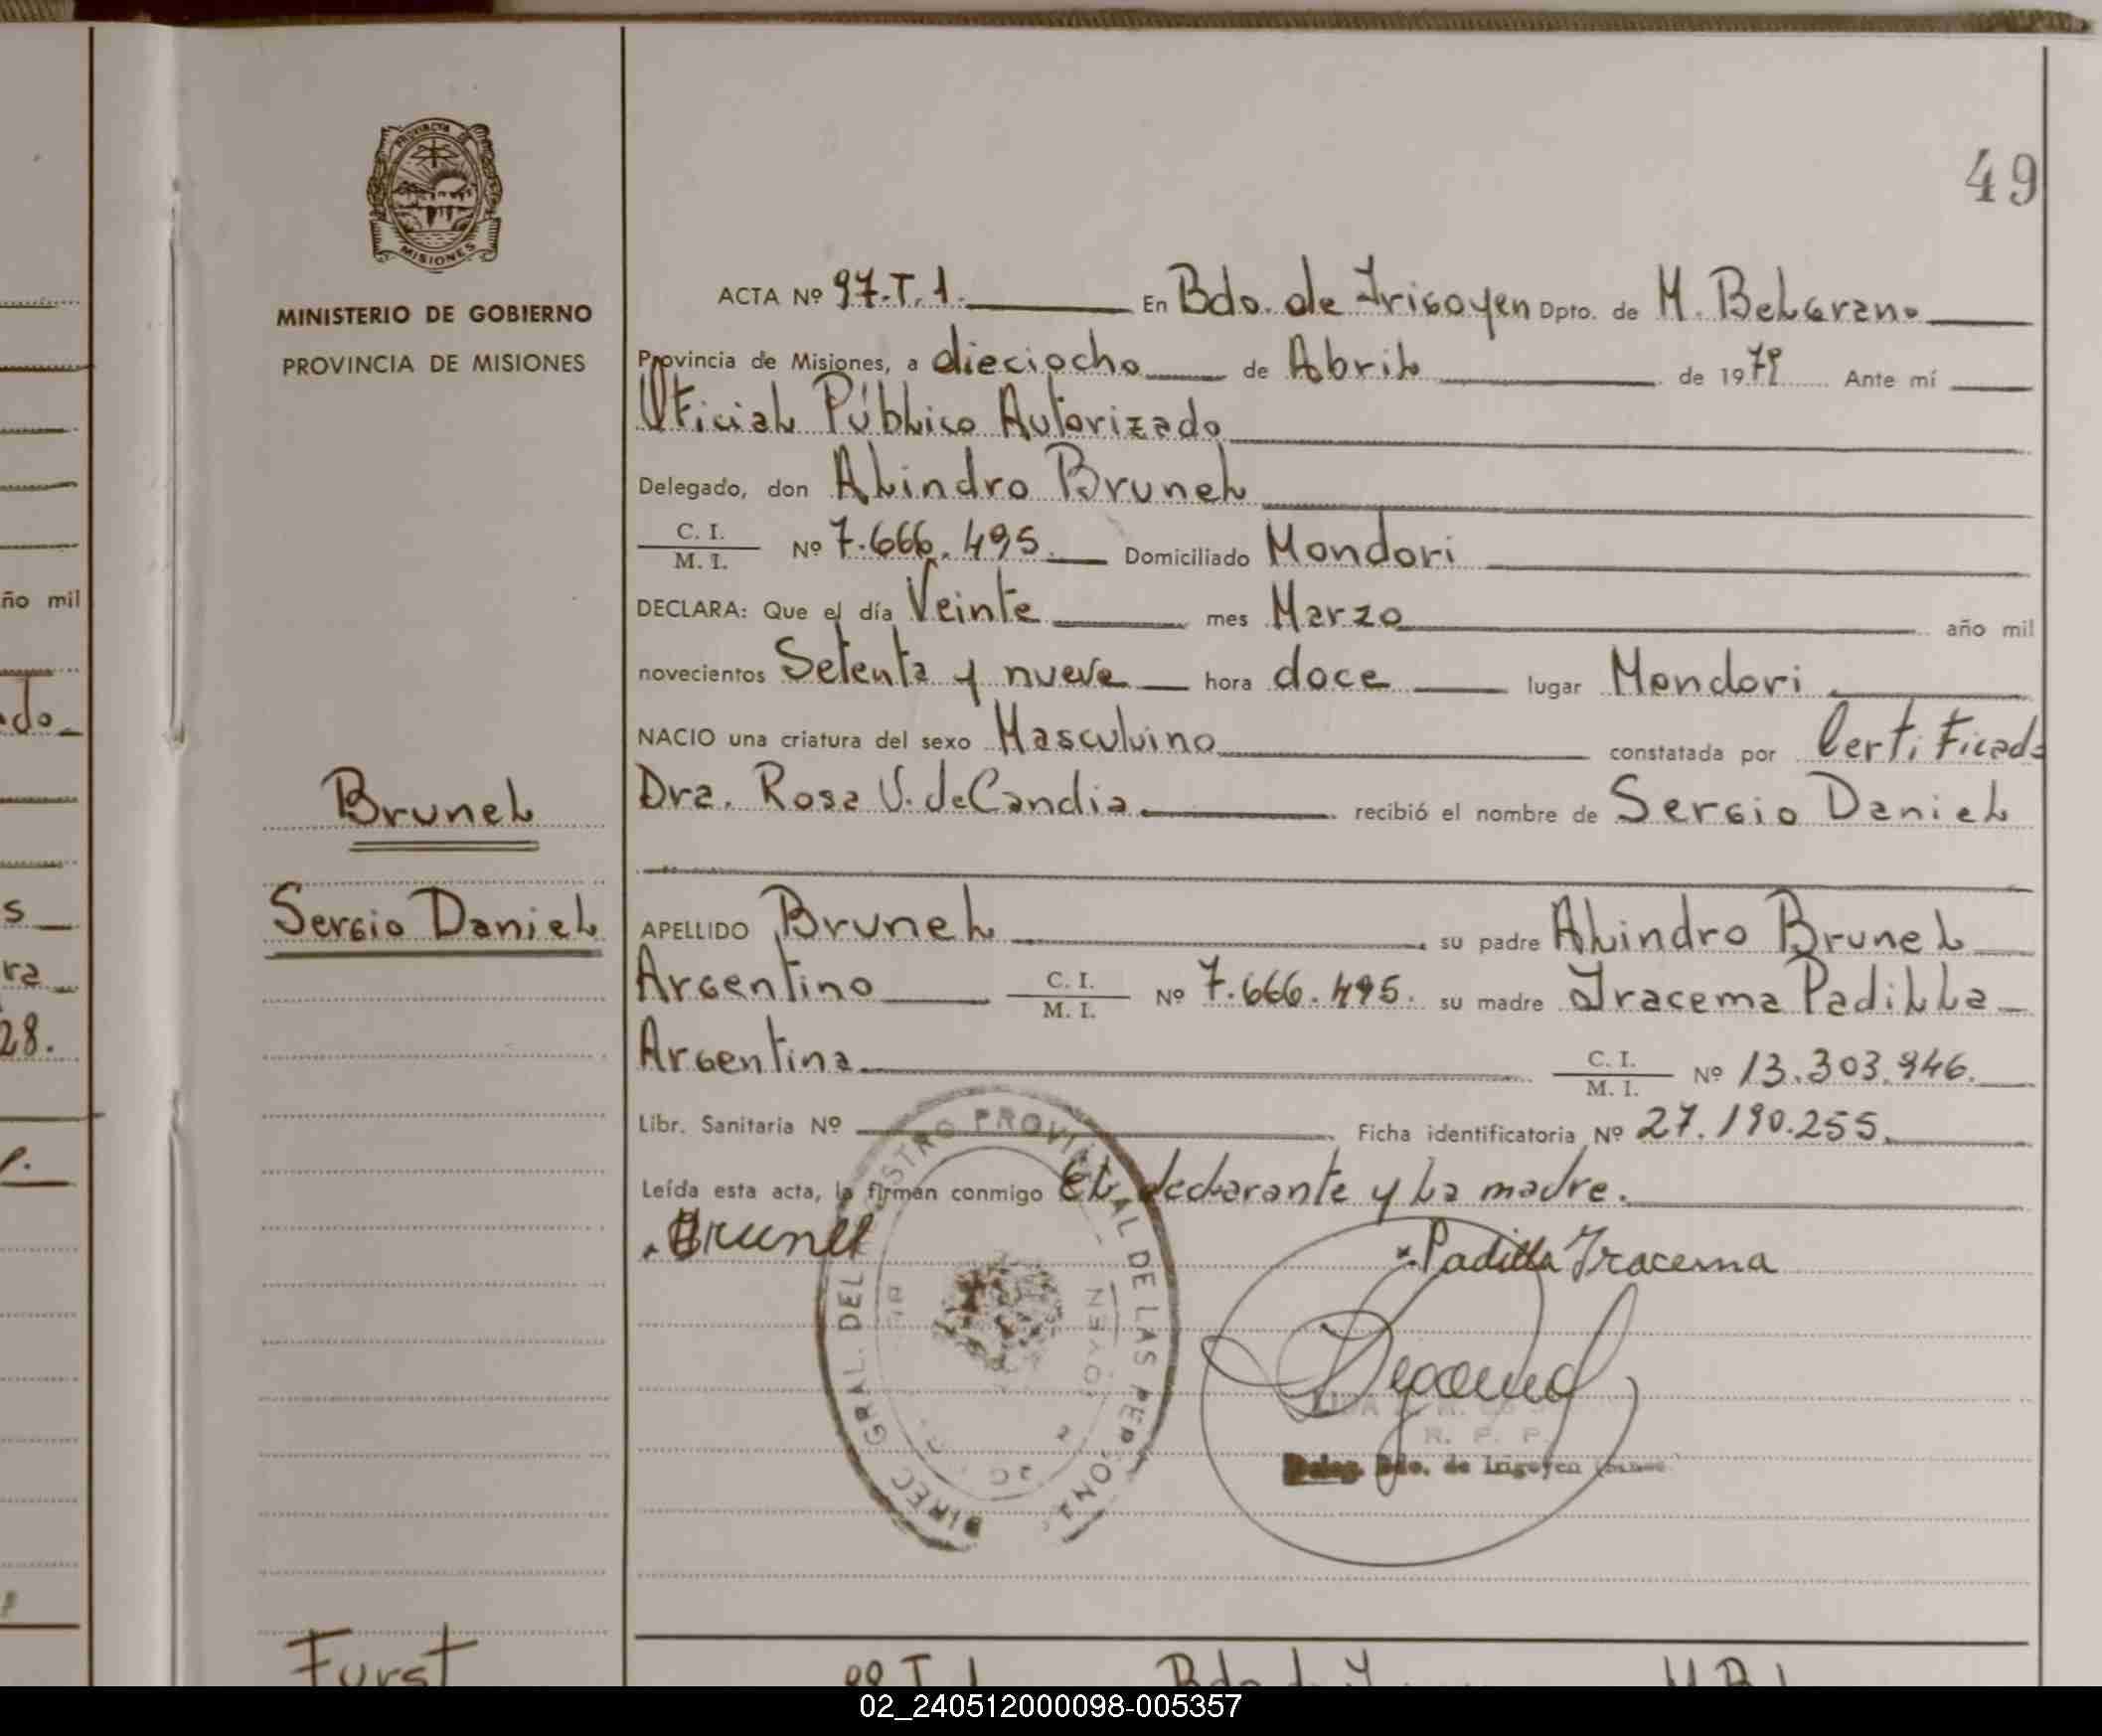 49
PROVINCIA DE
MISIONES
MINISTERIO DE GOBIERNO
PROVINCIA DE MISIONES
ACTA Nº 97-T.1. En Bdo. de Irigoyen Dpto. de M. Belgrano
Provincia de Misiones, a dieciocho de Abril de 1979 Ante mí
Oficial Público Autorizado
Delegado, don Alindro Brunel
C. I.
M. I. Nº 7.666.495. Domiciliado Mondori
DECLARA: Que el día Veinte mes Marzo año mil
novecientos Setenta y nueve hora doce lugar Mondori
NACIO una criatura del sexo Masculuino constatada por Certificado
Dra. Rosa V. de Candia recibió el nombre de Sergio Daniel
Brunel
Sergio Daniel
APELLIDO Brunel su padre Alindro Brunel
Argentino C. I.
M. I. Nº 7.666.495. su madre Iracema Padilla
Argentina C. I.
M. I. Nº 13.303.946.
Libr. Sanitaria Nº Ficha identificatoria Nº 27.190.255.
Leída esta acta, la firman conmigo El declarante y la madre.
Brunel
Padilla Iracema
DIREC GRAL. DEL PROVINCIAL DE LAS PERSONAS
R. P. P.
Deleg. Bdo. de Irigoyen
Furst
ño mil
do
s
ra
28.
02_240512000098-005357